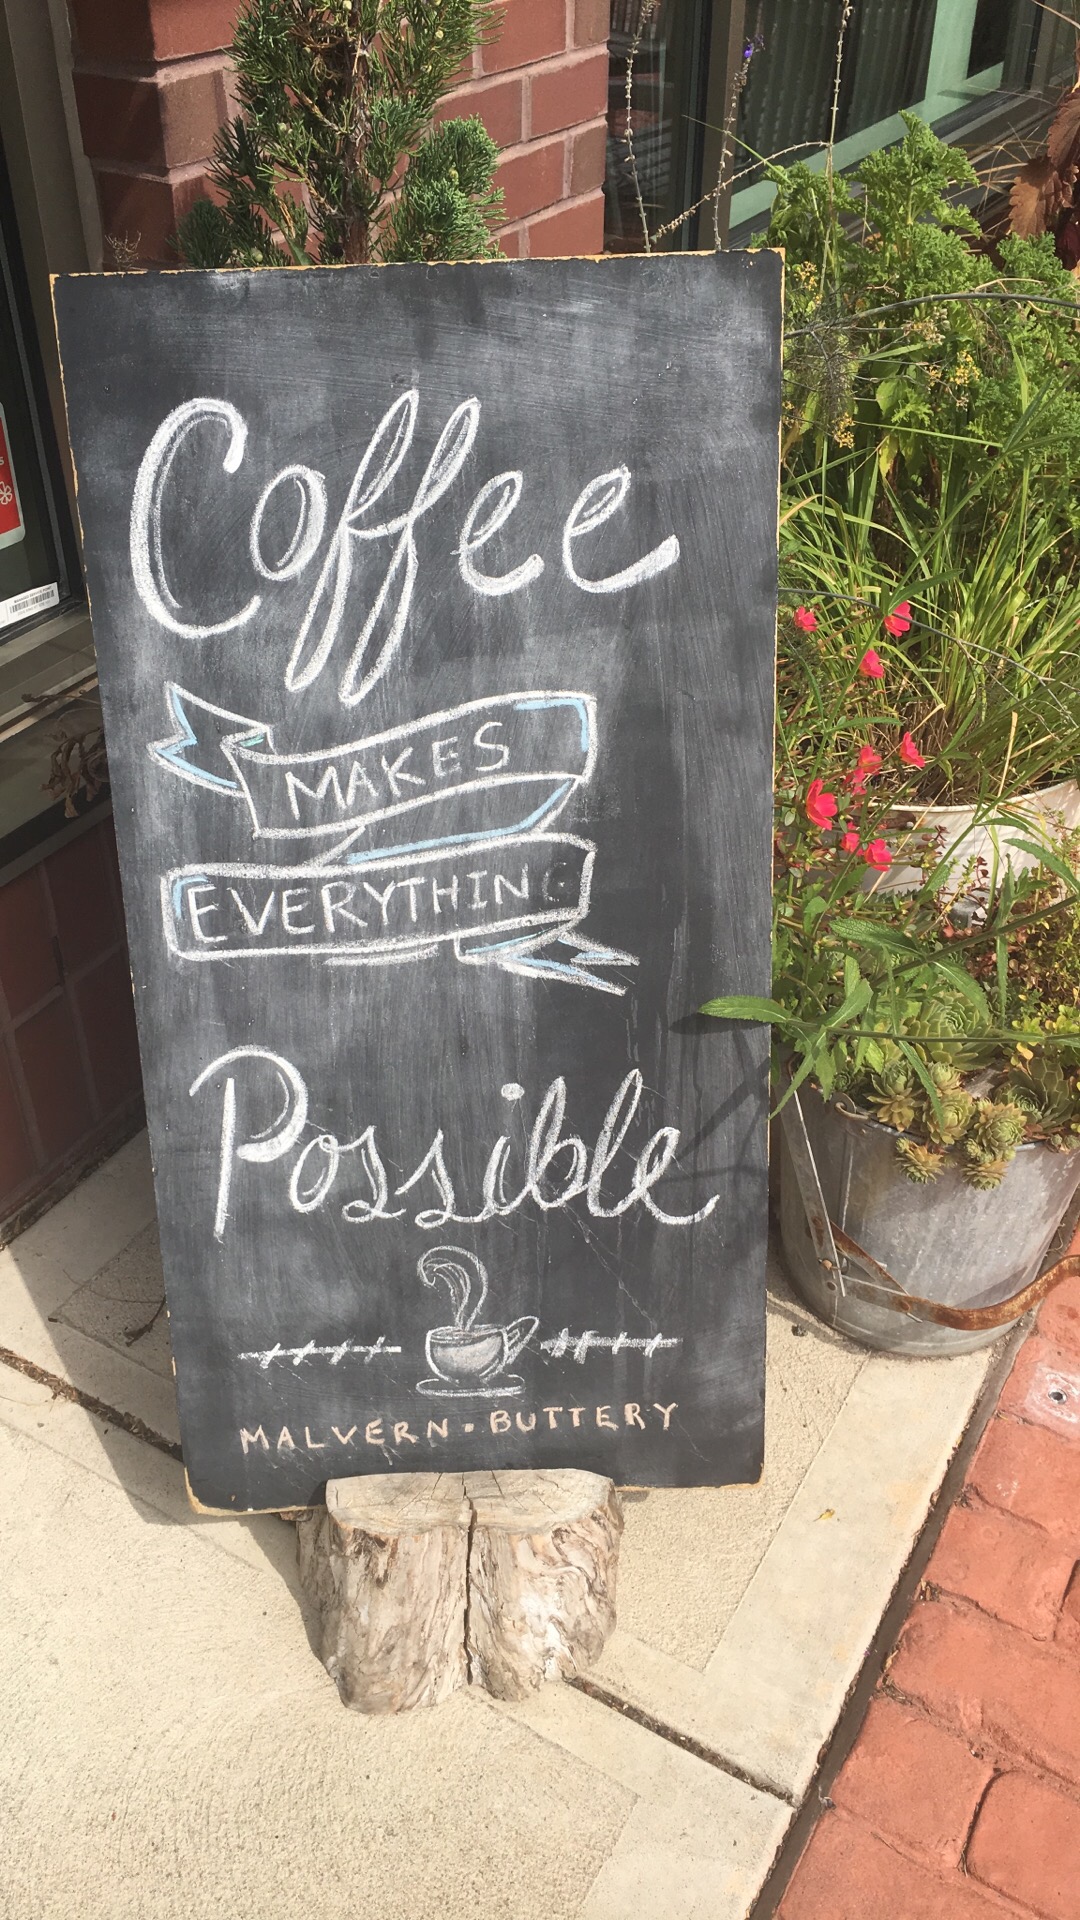 Coffee
MAKES
EVERYTHING
Possible
MALVERN · BUTTERY